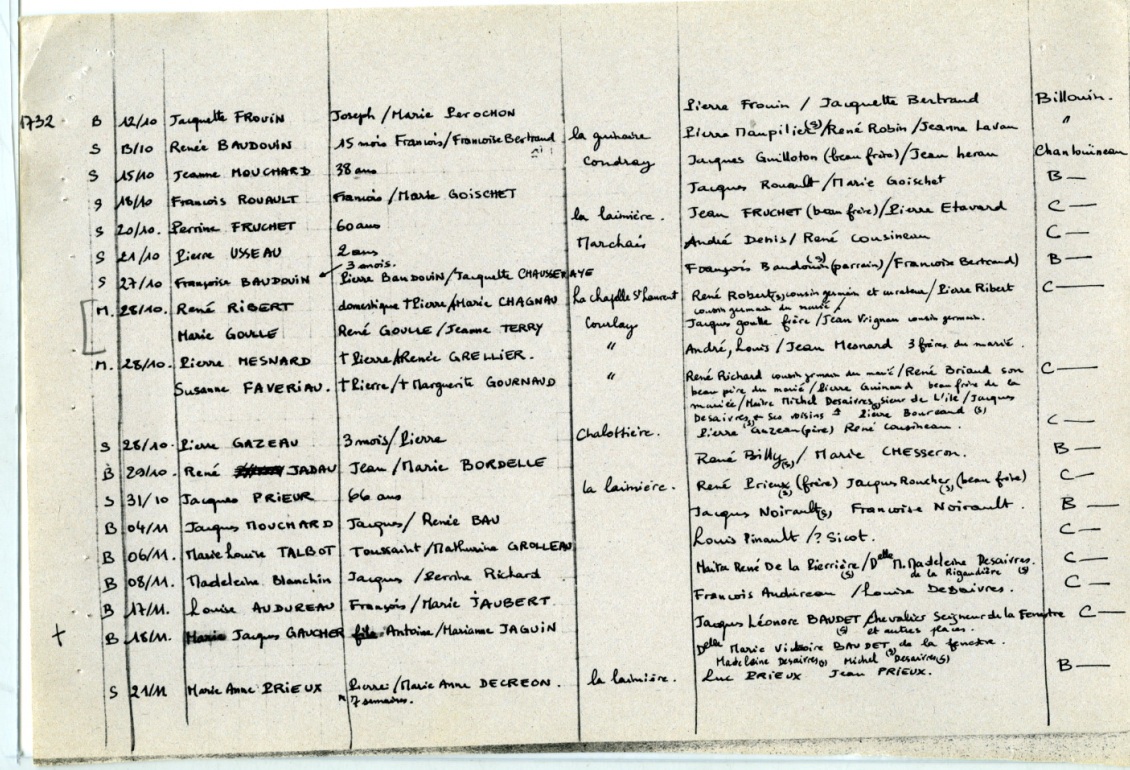 1732 B 12/10 Jacquette FROUIN Joseph / Marie PEROCHON Pierre Frouin / Jacquette Bertrand Billouin.
S 13/10 Renée BAUDOUIN 15 mois François/Françoise Bertrand la guinaire Pierre Maupilier (s)/René Robin/Jeanne Lavau "
S 15/10 Jeanne MOUCHARD 38 ans Coudray Jacques Guilloton (beau frère)/Jean heran Chantouineau
S 18/10 François ROUAULT François / Marie GOISCHET Jacques Rouault / Marie Goischet B —
S 20/10. Perrine FRUCHET 60 ans la laimière. Jean FRUCHET (beau frère)/Pierre Etavard C —
S 21/10 Pierre USSEAU 2 ans Marchais André Denis / René Cousineau C —
3 mois.
S 27/10 Françoise BAUDOUIN Pierre BAUDOUIN/Jacquette CHAUSSERAYE François Baudouin (s) (parrain) / Françoise Bertrand) B —
M. 28/10. René RIBERT domestique †Pierre/Marie CHAGNAU La chapelle St Laurent René Robert (s) cousin germain et curateur / Pierre Ribert C —
cousin germain du marié /
Marie GOULLE René GOULLE / Jeanne TERRY Courlay Jacques goulle frère / Jean Vrignau cousin germain.
M. 28/10. Pierre MESNARD † Pierre/†Renée GRELLIER. " André, Louis / Jean Mesnard 3 frères du marié.
Susanne FAVERIAU. † Pierre / † Marguerite GOURNAUD " René Richard cousin germain du marié / René Briaud son C —
beau père du marié / Pierre Guinard beau frère de la
mariée / Maitre Michel Desaivres, sieur de L'ile / Jacques
Desaivres (s) ses voisins Pierre Bourcand (s)
S 28/10. Pierre GAZEAU 3 mois / Pierre Chalottière. Pierre (s) Gazeau (père) René Cousineau. C —
B 29/10. René JADAU Jean / Marie BORDELLE René Billy (s) / Marie CHESSERON. B —
S 31/10 Jacques PRIEUR 66 ans la laimière. René Prieux (s) (frère) Jacques Roucher (s) (beau frère) C —
B 04/11 Jacques MOUCHARD Jacques / Renée BAU Jacques Noirault (s) Françoise Noirault. B —
B 06/11. Marie Louise TALBOT Toussaint / Mathurine GROLLEAU Louis Pinault / ? Sicot. C —
B 08/11. Madeleine Blanchin Jacques / Perrine Richard Maitre René De la Pierrière (s) / Delle M. Madeleine Desaivres. C —
de la Rigaudière (s)
B 17/11. Louise AUDUREAU François / Marie JAUBERT. François Audureau / Louise Desaivres. C —
† B 18/11. Jacques GAUCHER Antoine / Marianne JAGUIN Jacques Léonore BAUDET (s) Chevalier Seigneur de la Fenestre C —
et autres places.
Delle Marie Victoire BAUDET (s) de la fenestre.
Madeleine Desaivres (s) Michel Desaivres (s)
S 21/11 Marie Anne PRIEUX Pierre / Marie Anne DECREON. la laimière. Luc PRIEUX Jean PRIEUX. B —
7 semaines.